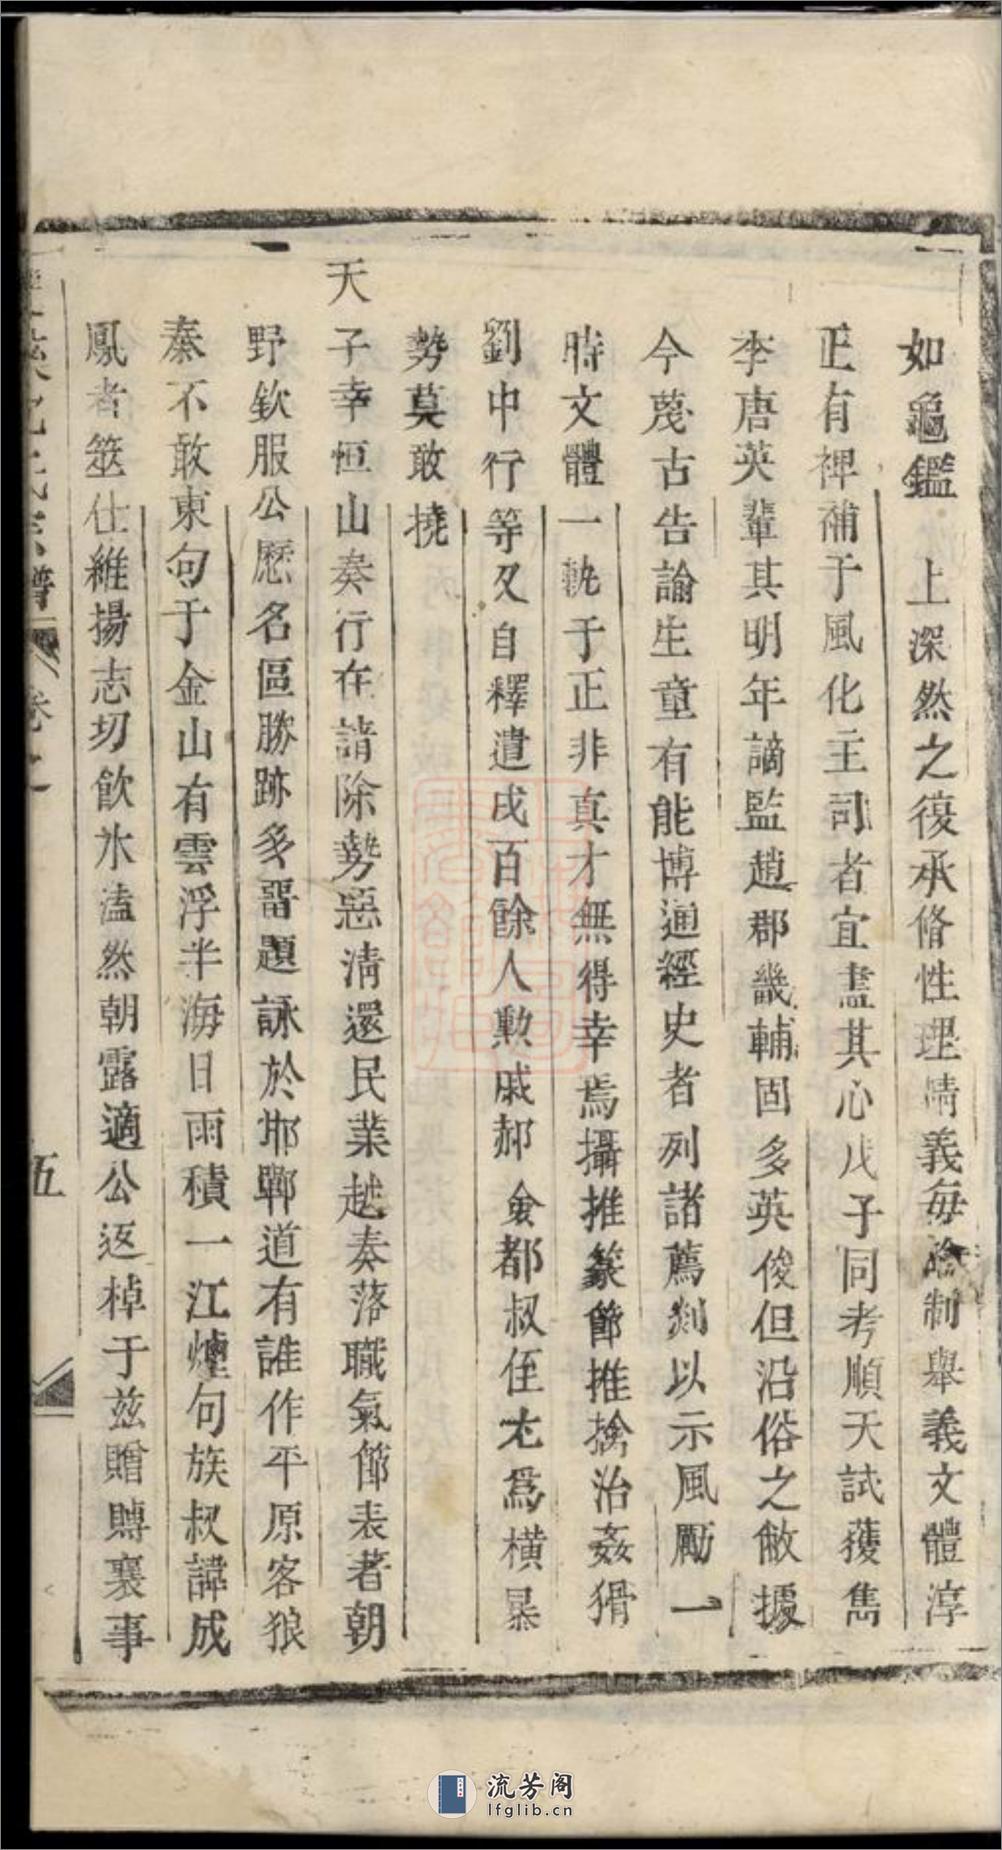 如龜鑑　上深然之復承脩性理精義每論制舉義文體淳
正有裨補于風化主司者宜盡其心戊子同考順天試獲雋
李唐英輩其明年謫監趙郡畿輔固多英俊但沿俗之敝據
今蔑古告諭生童有能博通經史者列諸薦剡以示風勵一
時文體一軌于正非真才無得幸焉攝推篆節推擒治姦猾
劉中行等又自釋遣戍百餘人勲戚郝僉都叔侄尤爲橫暴
勢莫敢撓
天子幸恒山奏行在請除勢惡清還民業越奏落職氣節表著朝
野欽服公歷名區勝跡多畱題詠於邯鄲道有誰作平原客狼
秦不敢東句于金山有雲浮半海日雨積一江煙句族叔諱成
鳳者筮仕維揚志切飲氷溘然朝露適公返棹于兹贈賻襄事
氏宗譜　卷之　五
流芳阁
lfglib.cn